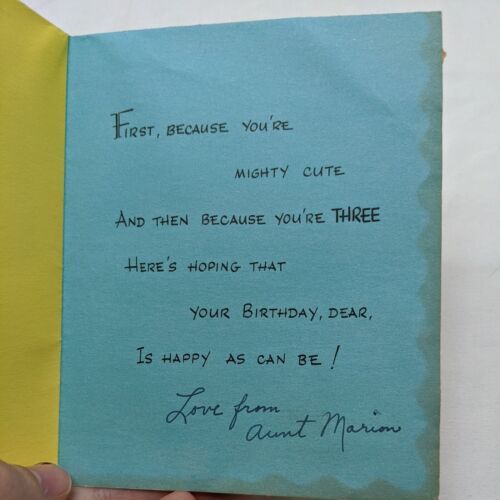 First, because you're
mighty cute
And then because you're THREE
Here's hoping that
your Birthday, dear,
Is happy as can be!
Love from
Aunt Marion